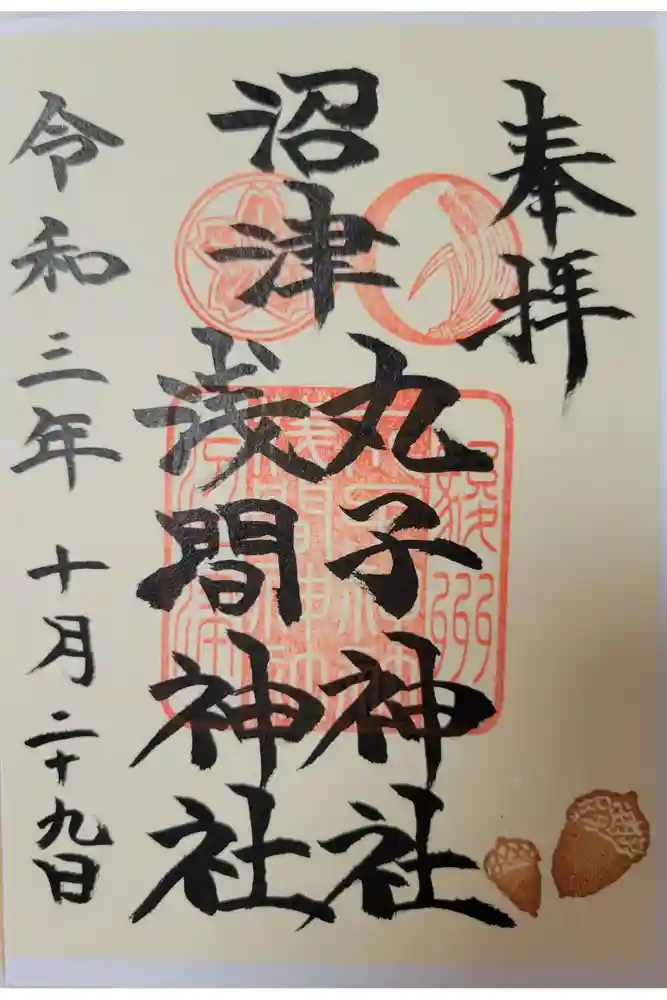 奉拝
沼津
丸子神社
浅間神社
令和三年十月二十九日
駿州